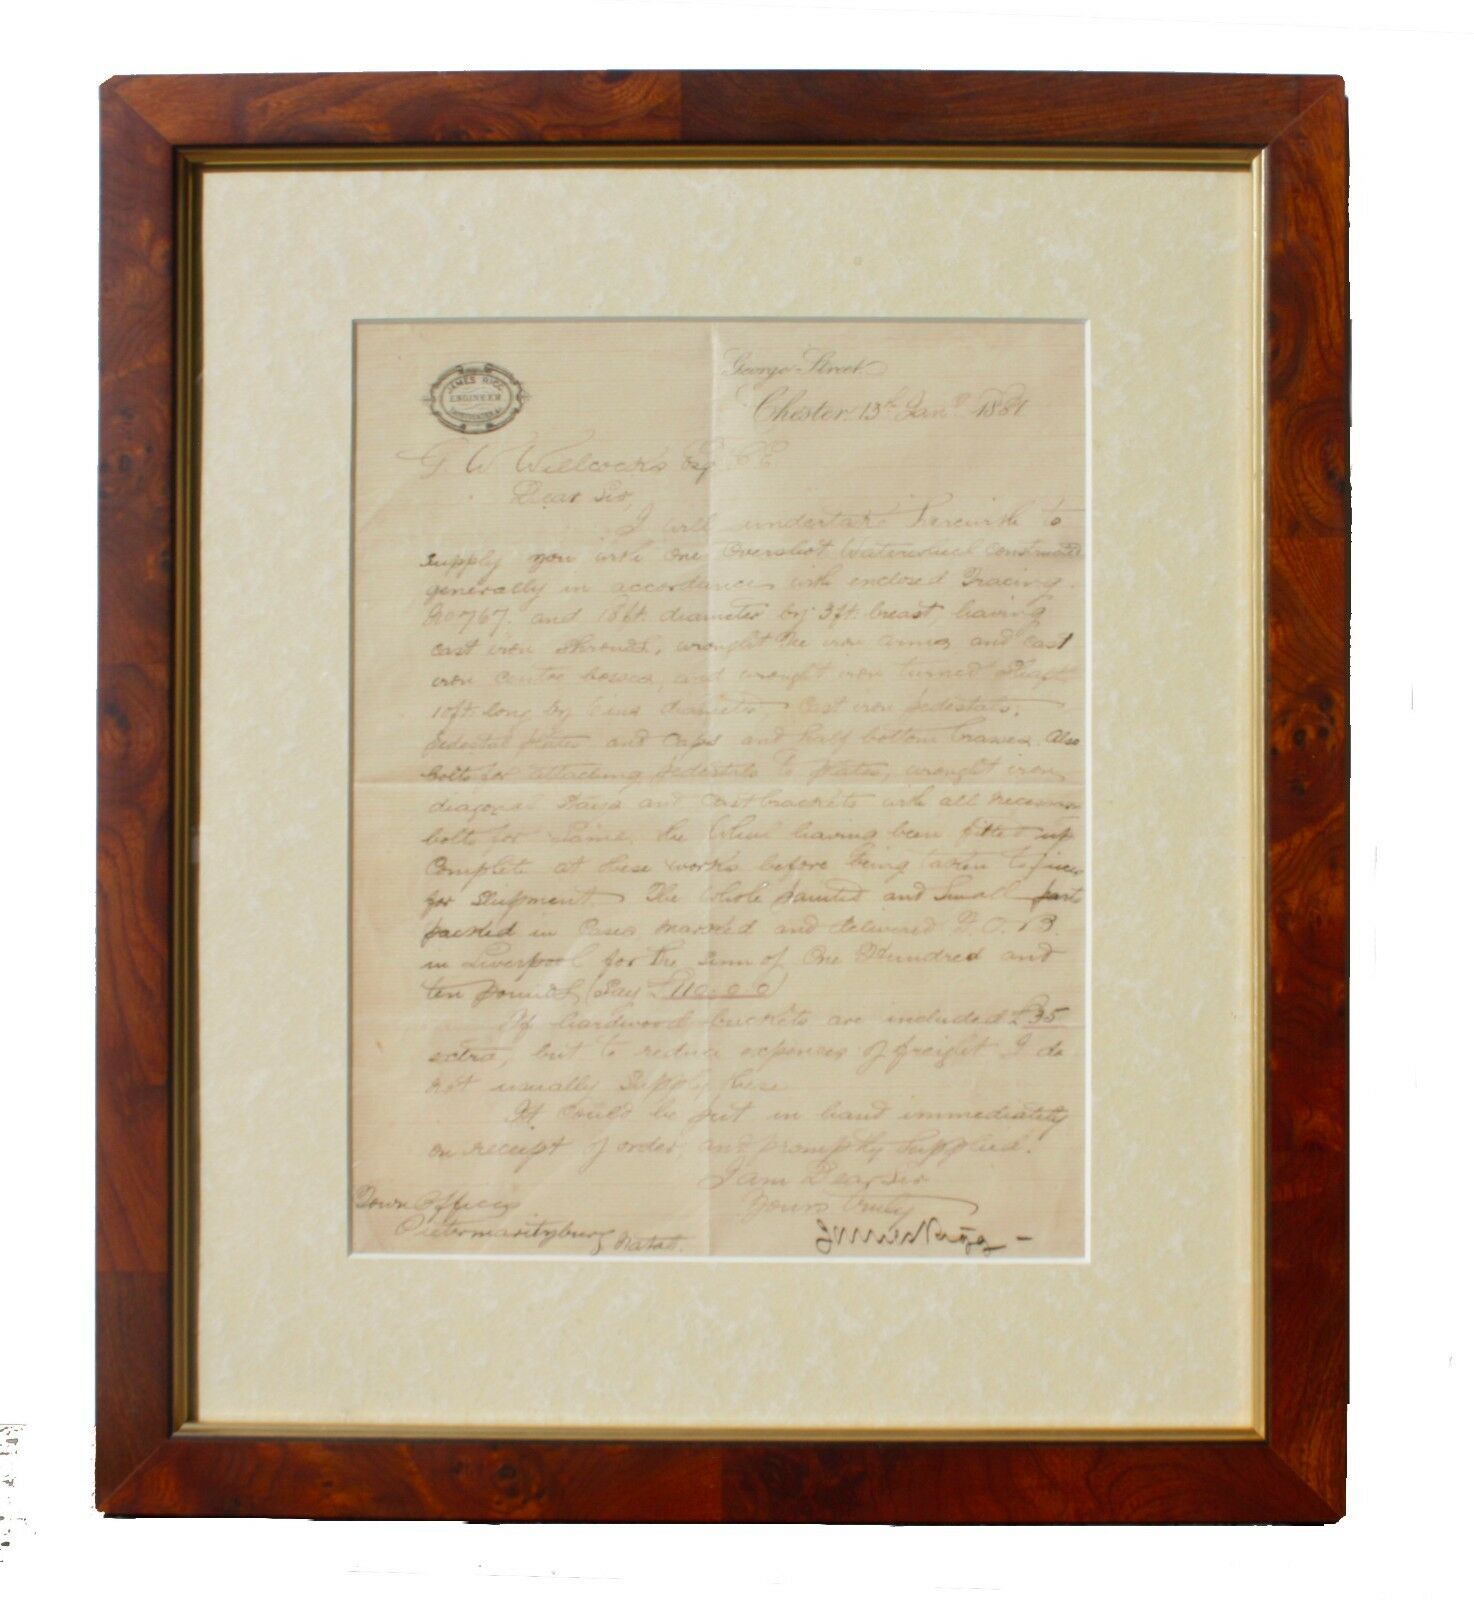 JAMES RIGG
ENGINEER
George Street
Chester 13th Jany 1881
G W Willcocks Esq C E
Dear Sir,
I will undertake herewith to
supply you with One Overshot Waterwheel constructed
generally in accordance with enclosed Tracing
No 767. and 18ft. diameter by 3ft. breast, having
cast iron Shrouds, wrought iron arms and cast
iron centre bosses, and wrought iron turned Shaft
10ft. long by 6 ins diameter, Cast iron pedestals,
pedestal plates and caps and half bottom brasses. Also
bolts for attaching pedestals to plates, wrought iron
diagonal and Cast brackets with all necessary
bolts for Same, the Wheel having been fitted up
Complete at these works before being taken to pieces
for Shipment. The Whole painted and Small parts
packed in Cases marked and delivered F.O.B.
in Liverpool for the sum of One Hundred and
ten pounds (Say £110.0.0)
If hardwood buckets are included £35
extra, but to reduce expenses of freight I do
not usually supply these
It could be put in hand immediately
on receipt of order and promptly supplied.
I am Dear Sir
Yours truly
James Rigg
Town Offices
Pietermaritzburg Natal.